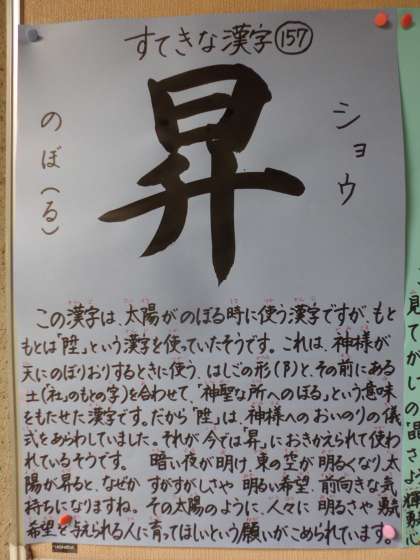 すてきな漢字 157
昇
ショウ
のぼ(る)
この漢字は、太陽がのぼる時に使う漢字ですが、もと
もとは「陞」という漢字を使っていたそうです。これは、神様が
天にのぼりおりするときに使う、はしごの形(阝)と、その前にある
土(「社」のもとの字)を合わせて、「神聖な所へのぼる」という意味
をもたせた漢字です。だから「陞」は、神様へのおいのりの儀
式をあらわしていました。それが今では「昇」におきかえられて使わ
れているそうです。 暗い夜が明け、東の空が明るくなり、太
陽が昇ると、なぜか すがすがしさや 明るい希望、前向きな気
持ちになりますね。その太陽のように、人々に 明るさや 勇気
希望を与えられる人に育ってほしいという願いがこめられています。
見てがいの
「晶さよ